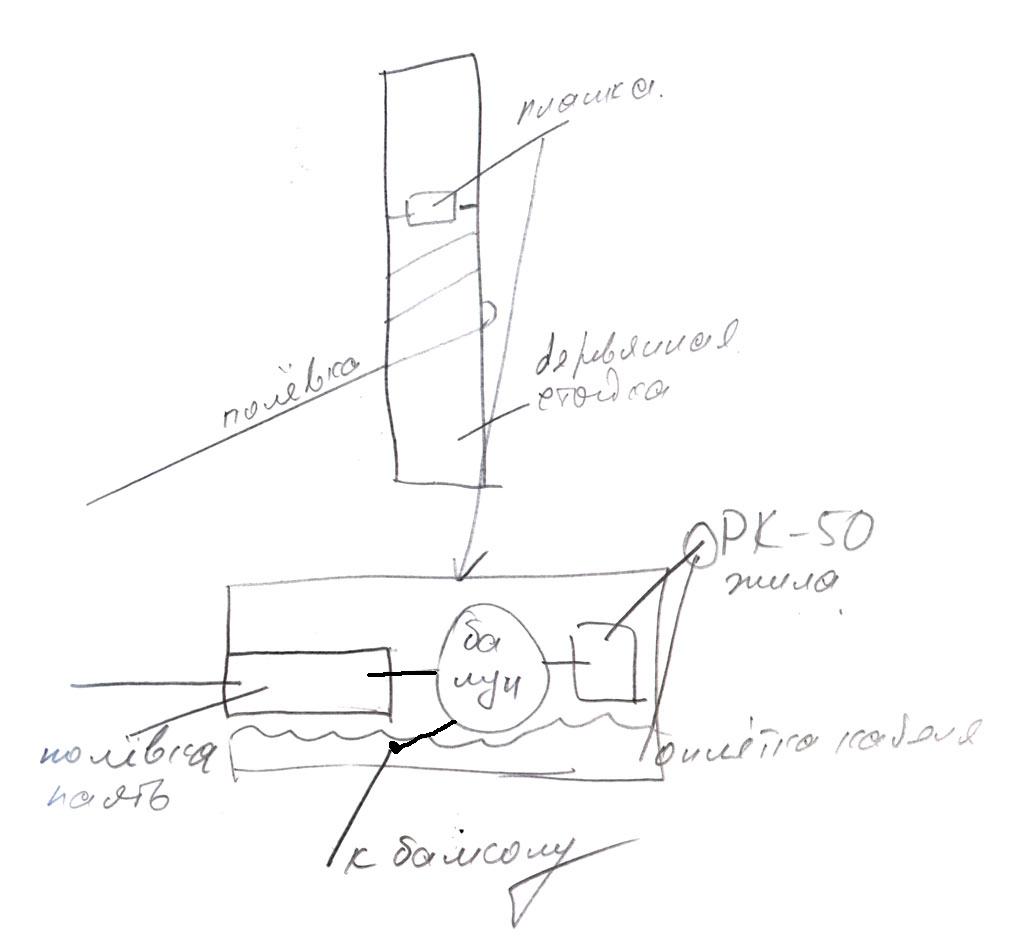 плашка.
полёвка
деревянная
стойка
РК-50
жила
ба
лун
полёвка
паять
оплётка кабеля
к балкону